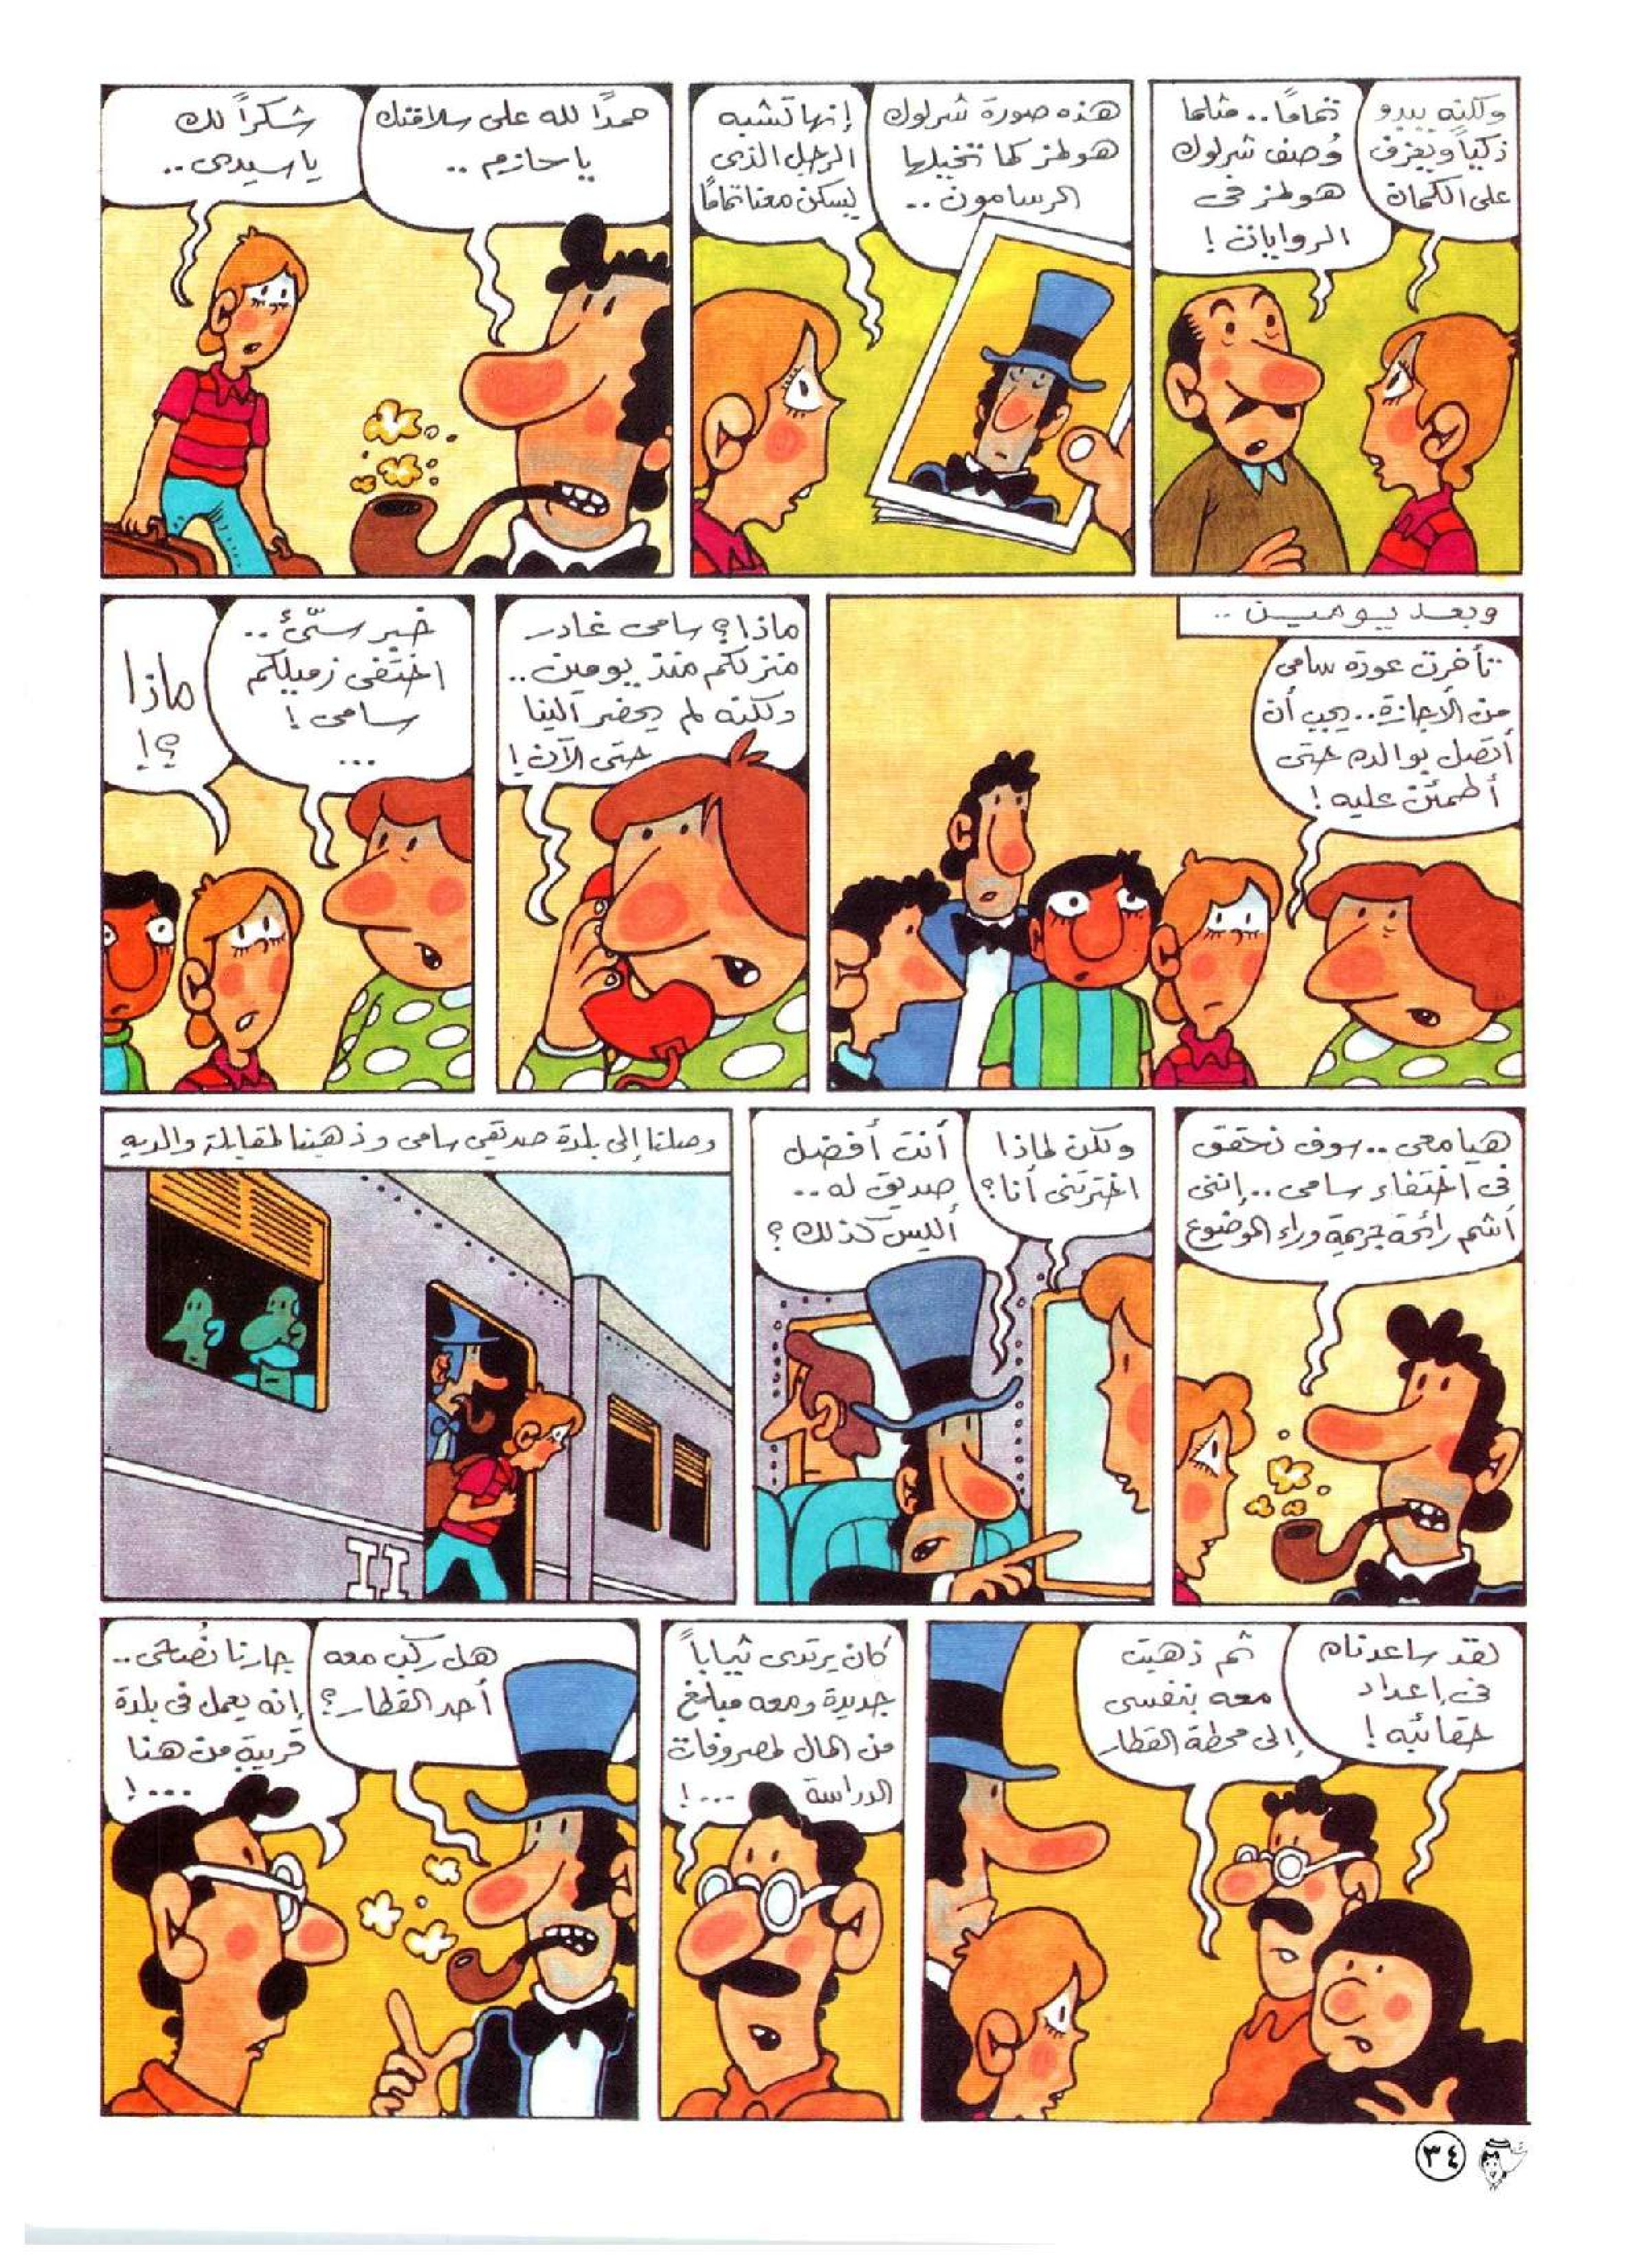 ولكنه يبدو
ذكياً ويعزف
على الكمان
تماماً.. مثلما
وُصف شرلوك
هولمز فى
الروايات!
هذه صورة شرلوك
هولمز كما تخيلها
الرسامون..
إنها تشبه
الرجل الذى
يسكن معنا تماماً
حمداً لله على سلامتك
يا حازم..
شكراً لك
يا سيدى..
وبعد يومين..
تأخرت عودة سامى
من الأجازة.. يجب أن
أتصل بوالده حتى
أطمئن عليه!
ماذا؟ سامى غادر
منزلكم منذ يومين..
ولكنه لم يحضر الينا
حتى الآن!
خبر سىّء..
اختفى زميلكم
سامى!
...
ماذا
؟!
هيا معى.. سوف نحقق
فى اختفاء سامى.. إننى
أشم رائحة جريمة وراء الموضوع
ولكن لماذا
اخترتنى أنا؟
أنت أفضل
صديق له..
أليس كذلك؟
وصلنا إلى بلدة صديقى سامى وذهبنا لمقابلة والديه
لقد ساعدناه
فى إعداد
حقائبه!
ثم ذهبت
معه بنفسى
إلى محطة القطار
كان يرتدى ثياباً
جديدة ومعه مبلغ
من المال لمصروفات
الدراسة ...!
هل ركب معه
أحد القطار؟
جارنا نُصحى..
إنه يعمل فى بلدة
قريبة من هنا
...!
٣٤